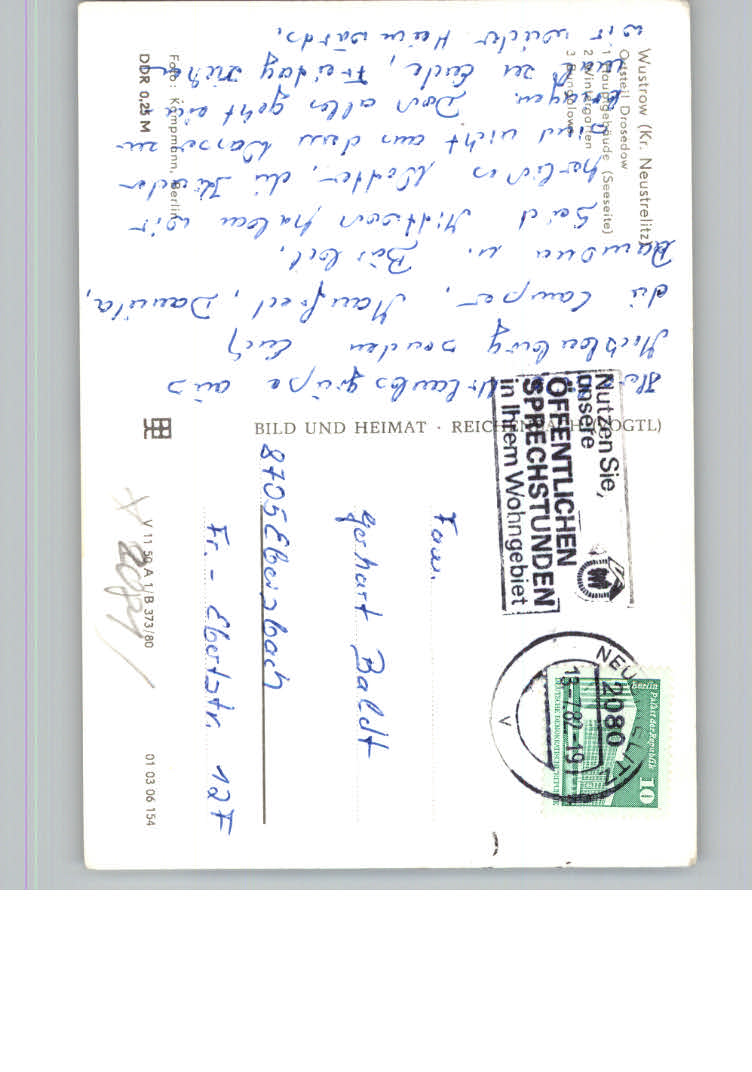 Wustrow (Kr. Neustrelitz)
Ortsteil Drosedow
1 Hauptgebäude (Seeseite)
2 Wintergarten
3 Bungalows
Foto: Kampmann, Berlin
DDR 0,25 M
Urlaubsgrüße aus
senden Euch
die Camper, Manfred, Daniela,
u. Bärbel.
Seid Mittwoch haben wir
herliches Wetter, die Kinder
sind nicht aus dem Wasser zu
kriegen. Doch alles geht ein
mal zu Ende, Freitag ziehen
wir wieder Heimwärds.
BILD UND HEIMAT · REICHENBACH (VOGTL)
Nutzen Sie,
unsere
ÖFFENTLICHEN
SPRECHSTUNDEN
in Ihrem Wohngebiet
NEUSTRELITZ
2080
13-7.82-19
V
Berlin Palast der Republik
10
DEUTSCHE DEMOKRATISCHE REPUBLIK
Fam.
Gerhart Baldt
8705 Ebersbach
Fr.-Ebertstr. 127
V 11 50 A 1/B 373/80
01 03 06 154